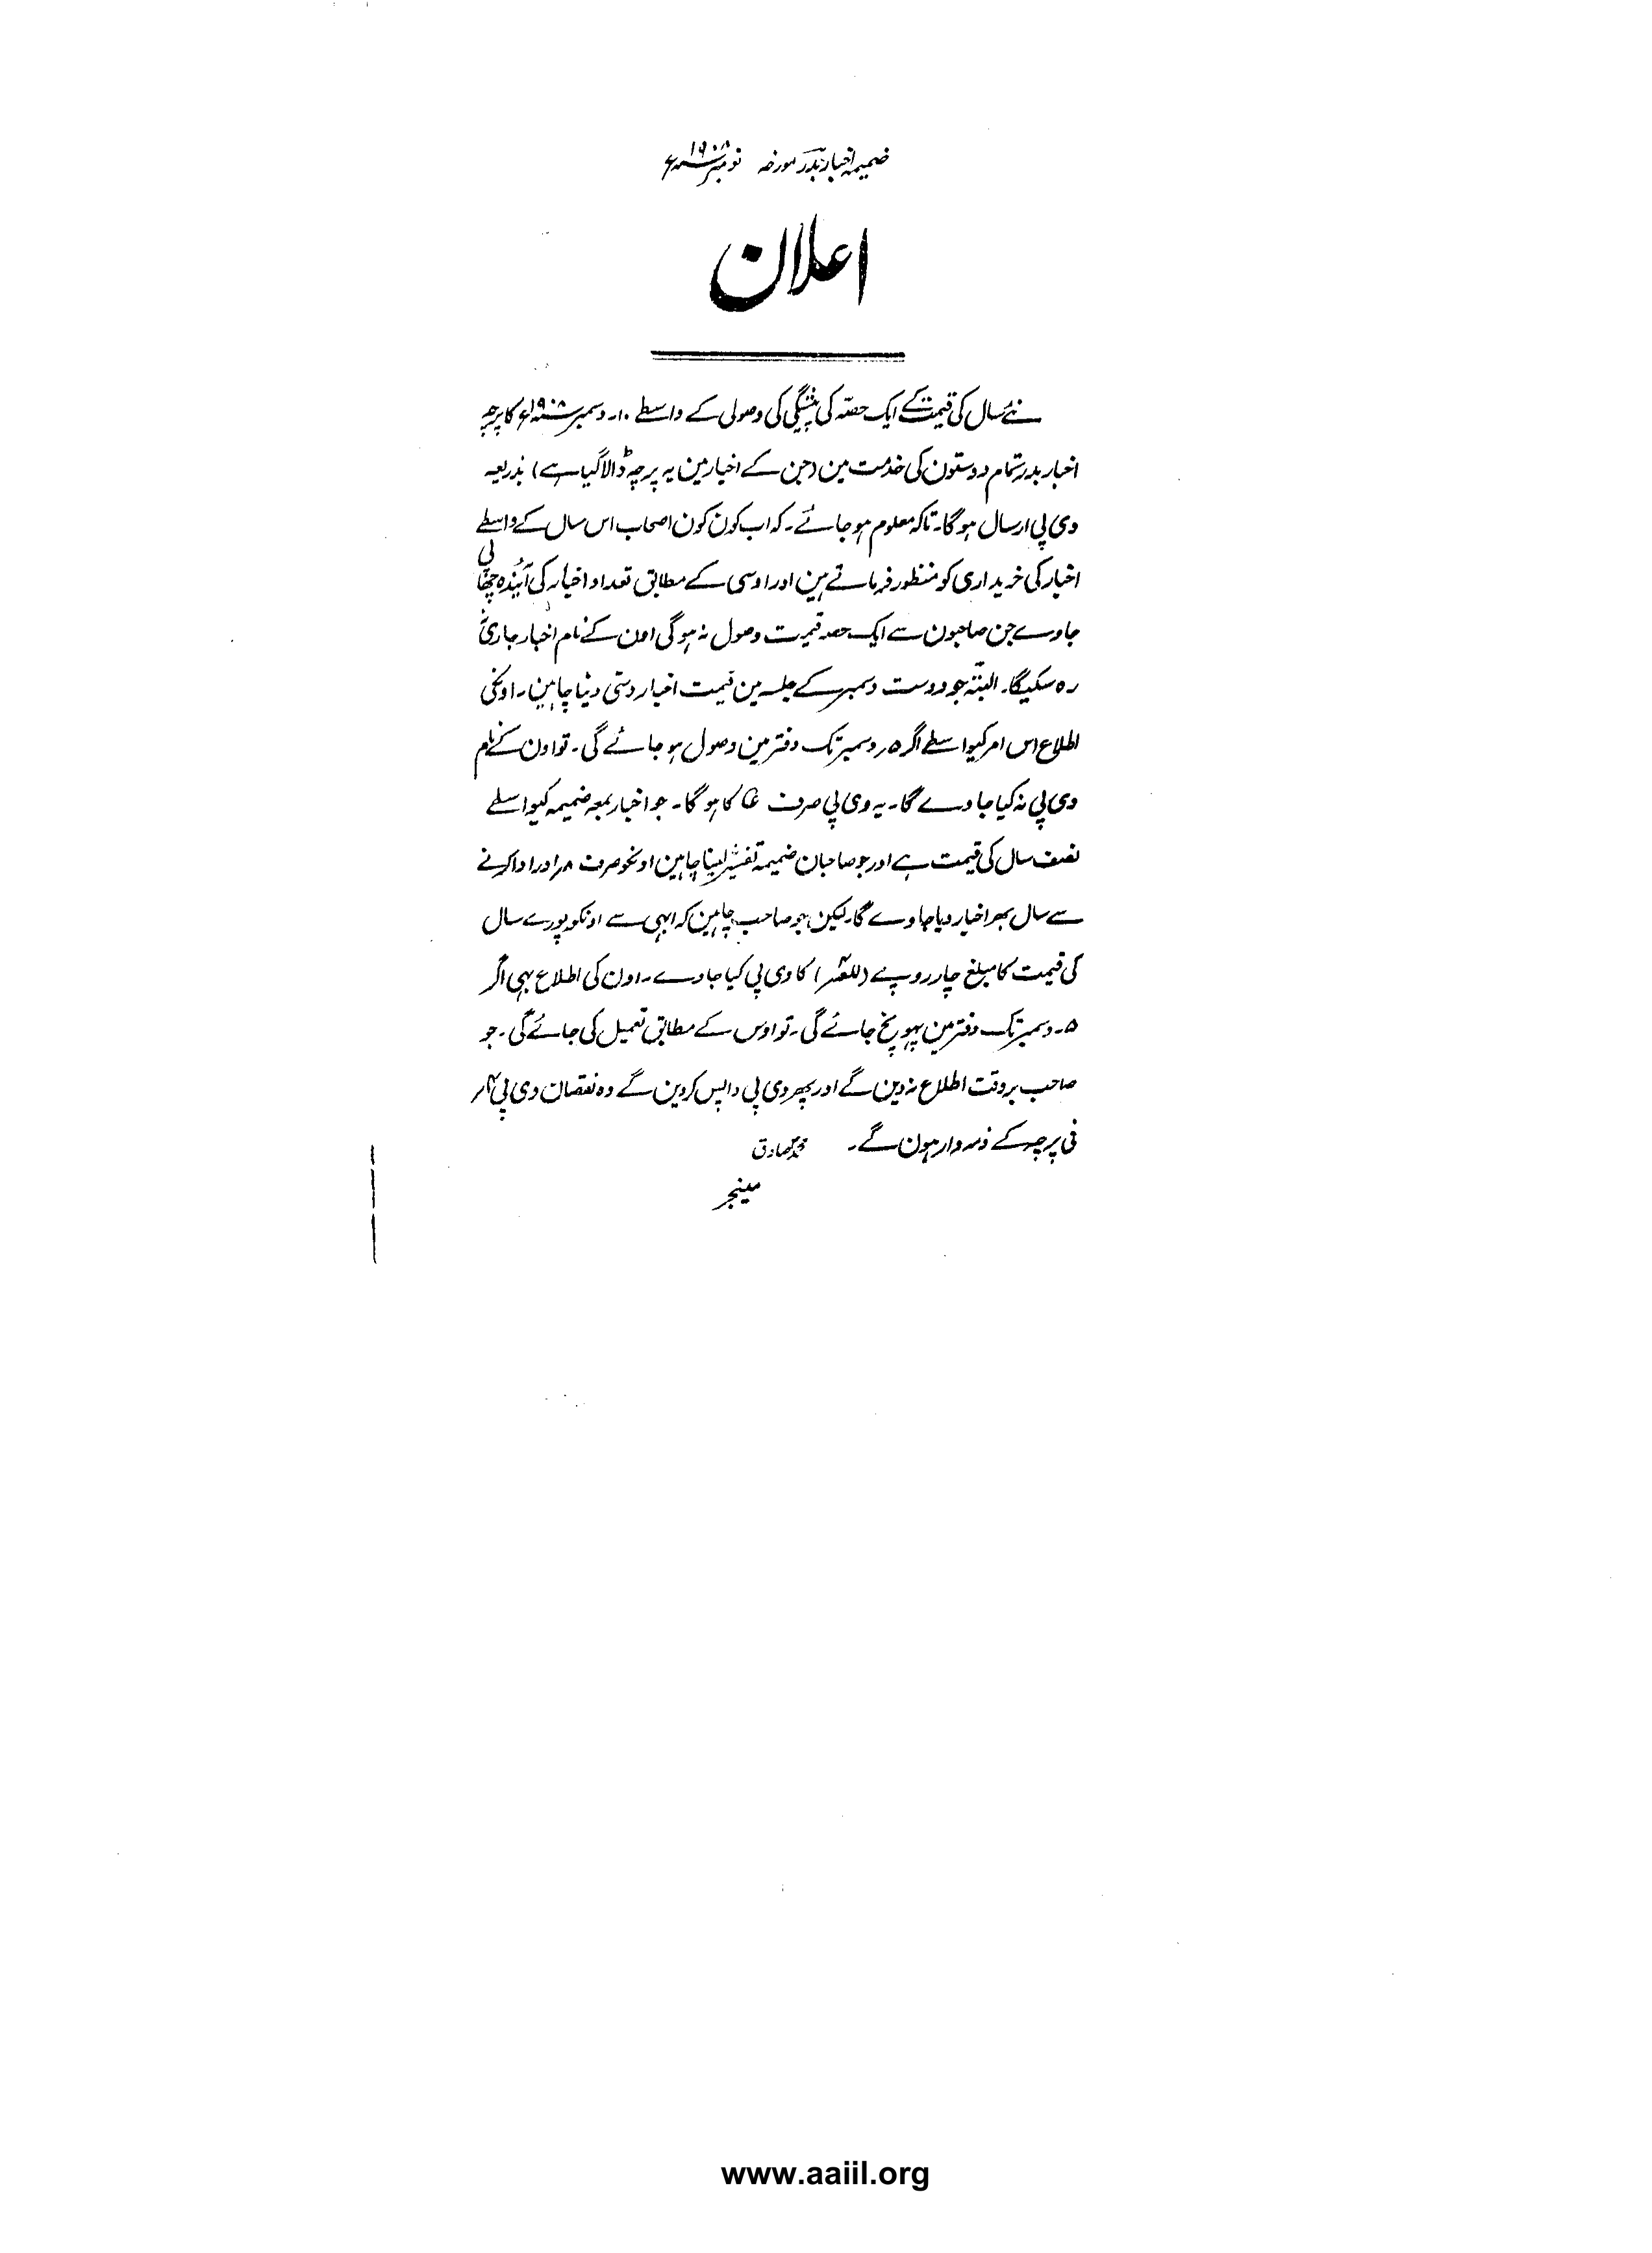 ضمیمہ اخبار بدر مورخہ نومبر ۱۹۰۸ء
اعلان
نئے سال کی قیمت کے ایک حصّہ کی پیشگی کی وصولی کے واسطے ۱۰۔ دسمبر ۱۹۰۸ء کا پرچہ
اخبار بدر تمام دوستون کی خدمت مین (جن کے اخبار مین یہ پرچہ ڈالا گیا ہے) بذریعہ
وی پی ارسال ہو گا۔ تاکہ معلوم ہو جائے۔ کہ اب کون کون اصحاب اس سال کے واسطے
اخبار کی خریداری کو منظور فرماتے ہین اور اوسی کے مطابق تعداد اخبار کی آئندہ چھاپی
جاوے جن صاحبون سے ایک حصہ قیمت وصول نہ ہو گی اون کے نام اخبار جاری نہ
رہ سکیگا۔ البتّہ جو دوست دسمبر کے جلسہ مین قیمت اخبار دستی دینا چاہین۔ اونکی
اطلاع اس امر کیواسطے اگر ۵ر دسمبر تک دفتر مین وصول ہو جائے گی۔ تو اون کے نام
وی پی نہ کیا جاوے گا۔ یہ وی پی صرف کا ہو گا۔ جو اخبار بمعہ ضمیمہ کیواسطے
نصف سال کی قیمت ہے اور جو صاحبان ضمیمہ تفسیر لینا چاہین اونکو صرف اور ادا کرنے
سے سال بھر اخبار دیا جاوے گا۔ لیکن جو صاحب چاہین کہ ابہی سے اونکو پورے سال
کی قیمت کا مبلغ چار روپے کا وی پی کیا جاوے۔ اون کی اطلاع بہی اگر
۵۔ دسمبر تک دفتر مین پہونچ جائے گی۔ تو اوس کے مطابق تعمیل کی جائے گی۔ جو
صاحب بروقت اطلاع نہ دین گے اور پھر وی پی واپس کر دین گے وہ نقصان وی پی
فی پرچہ کے ذمہ وار ہون گے۔ محمد صادق
مینجر
www.aaiil.org